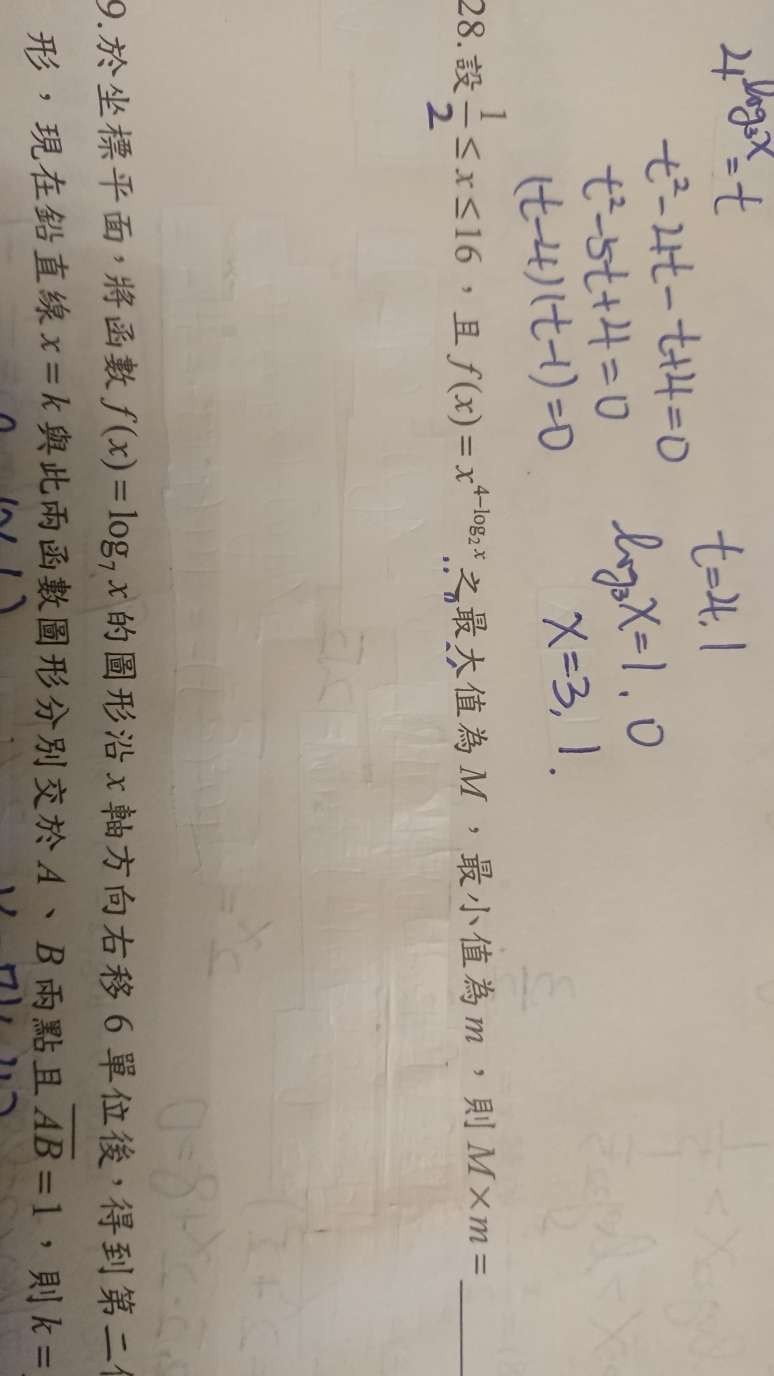 4^{log₃x} = t
t² - 4t - t + 4 = 0
t² - 5t + 4 = 0
(t-4)(t-1) = 0
t = 4, 1
log₃x = 1, 0
x = 3, 1.
28. 設 1/2 ≤ x ≤ 16，且 f(x) = x^{4-log₂x} 之最大值為 M，最小值為 m，則 M × m = ______
9. 於坐標平面，將函數 f(x) = log₇ x 的圖形沿 x 軸方向右移 6 單位後，得到第二
形，現在鉛直線 x = k 與此兩函數圖形分別交於 A、B 兩點且 \overline{AB} = 1，則 k =